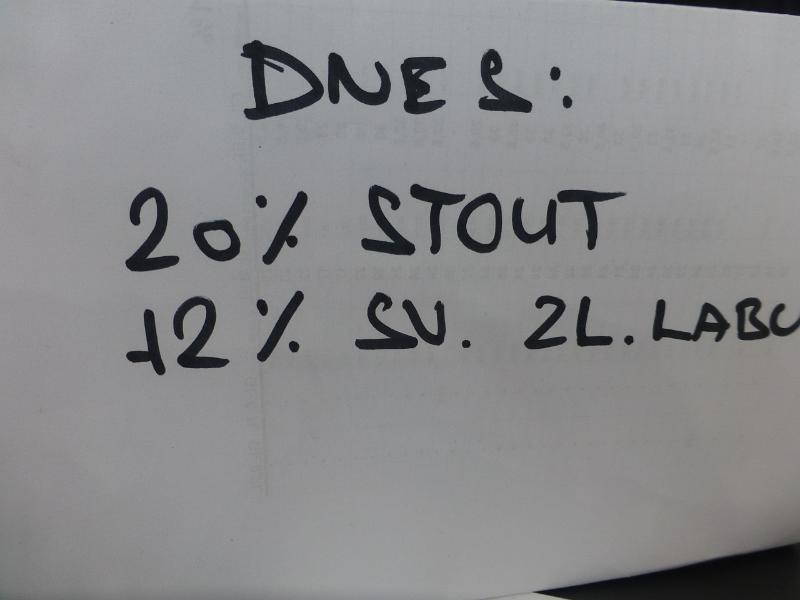 DNES:
20% STOUT
12% SV. ZL. LABU